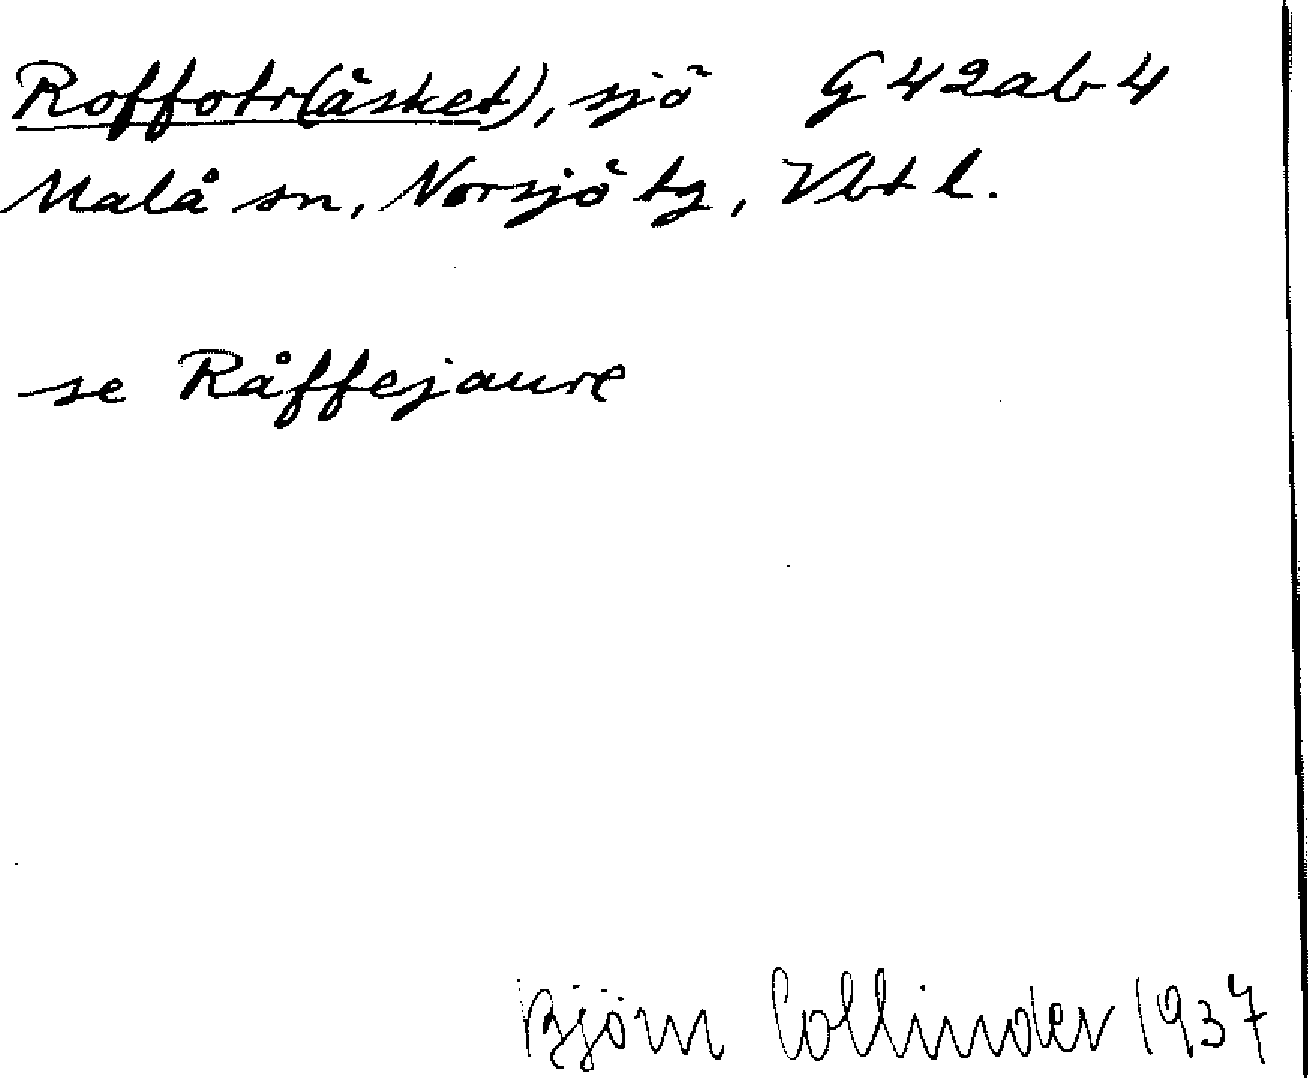 Roffotr(äsket), sjö G42ab4
Malå sn, Norsjö tg, Vbt l.
se Råffejaure
Björn Collinder 1937